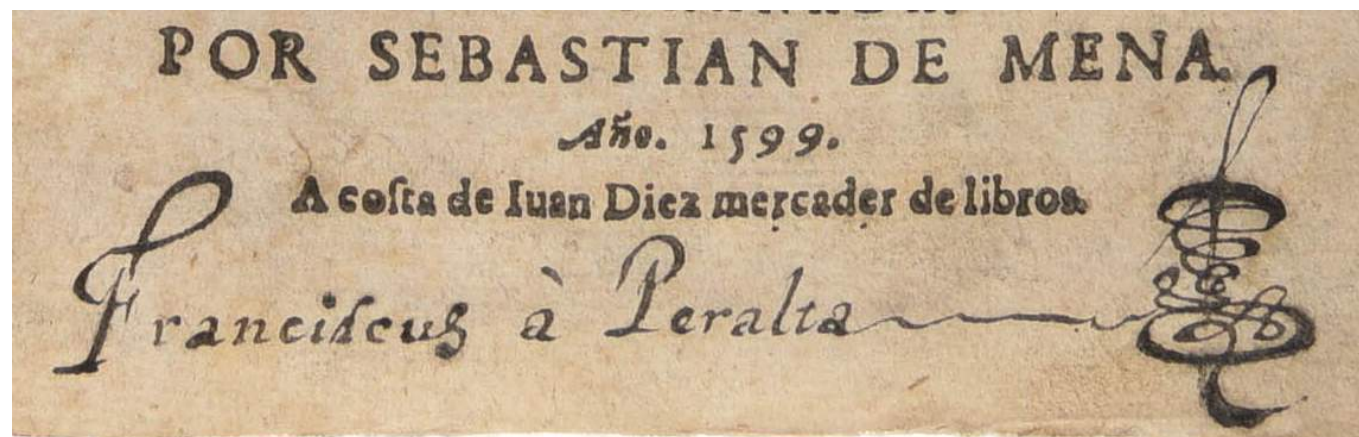 POR SEBASTIAN DE MENA.
Año. 1599.
A coſta de Iuan Diez mercader de libros.
Franciſcus à Peralta